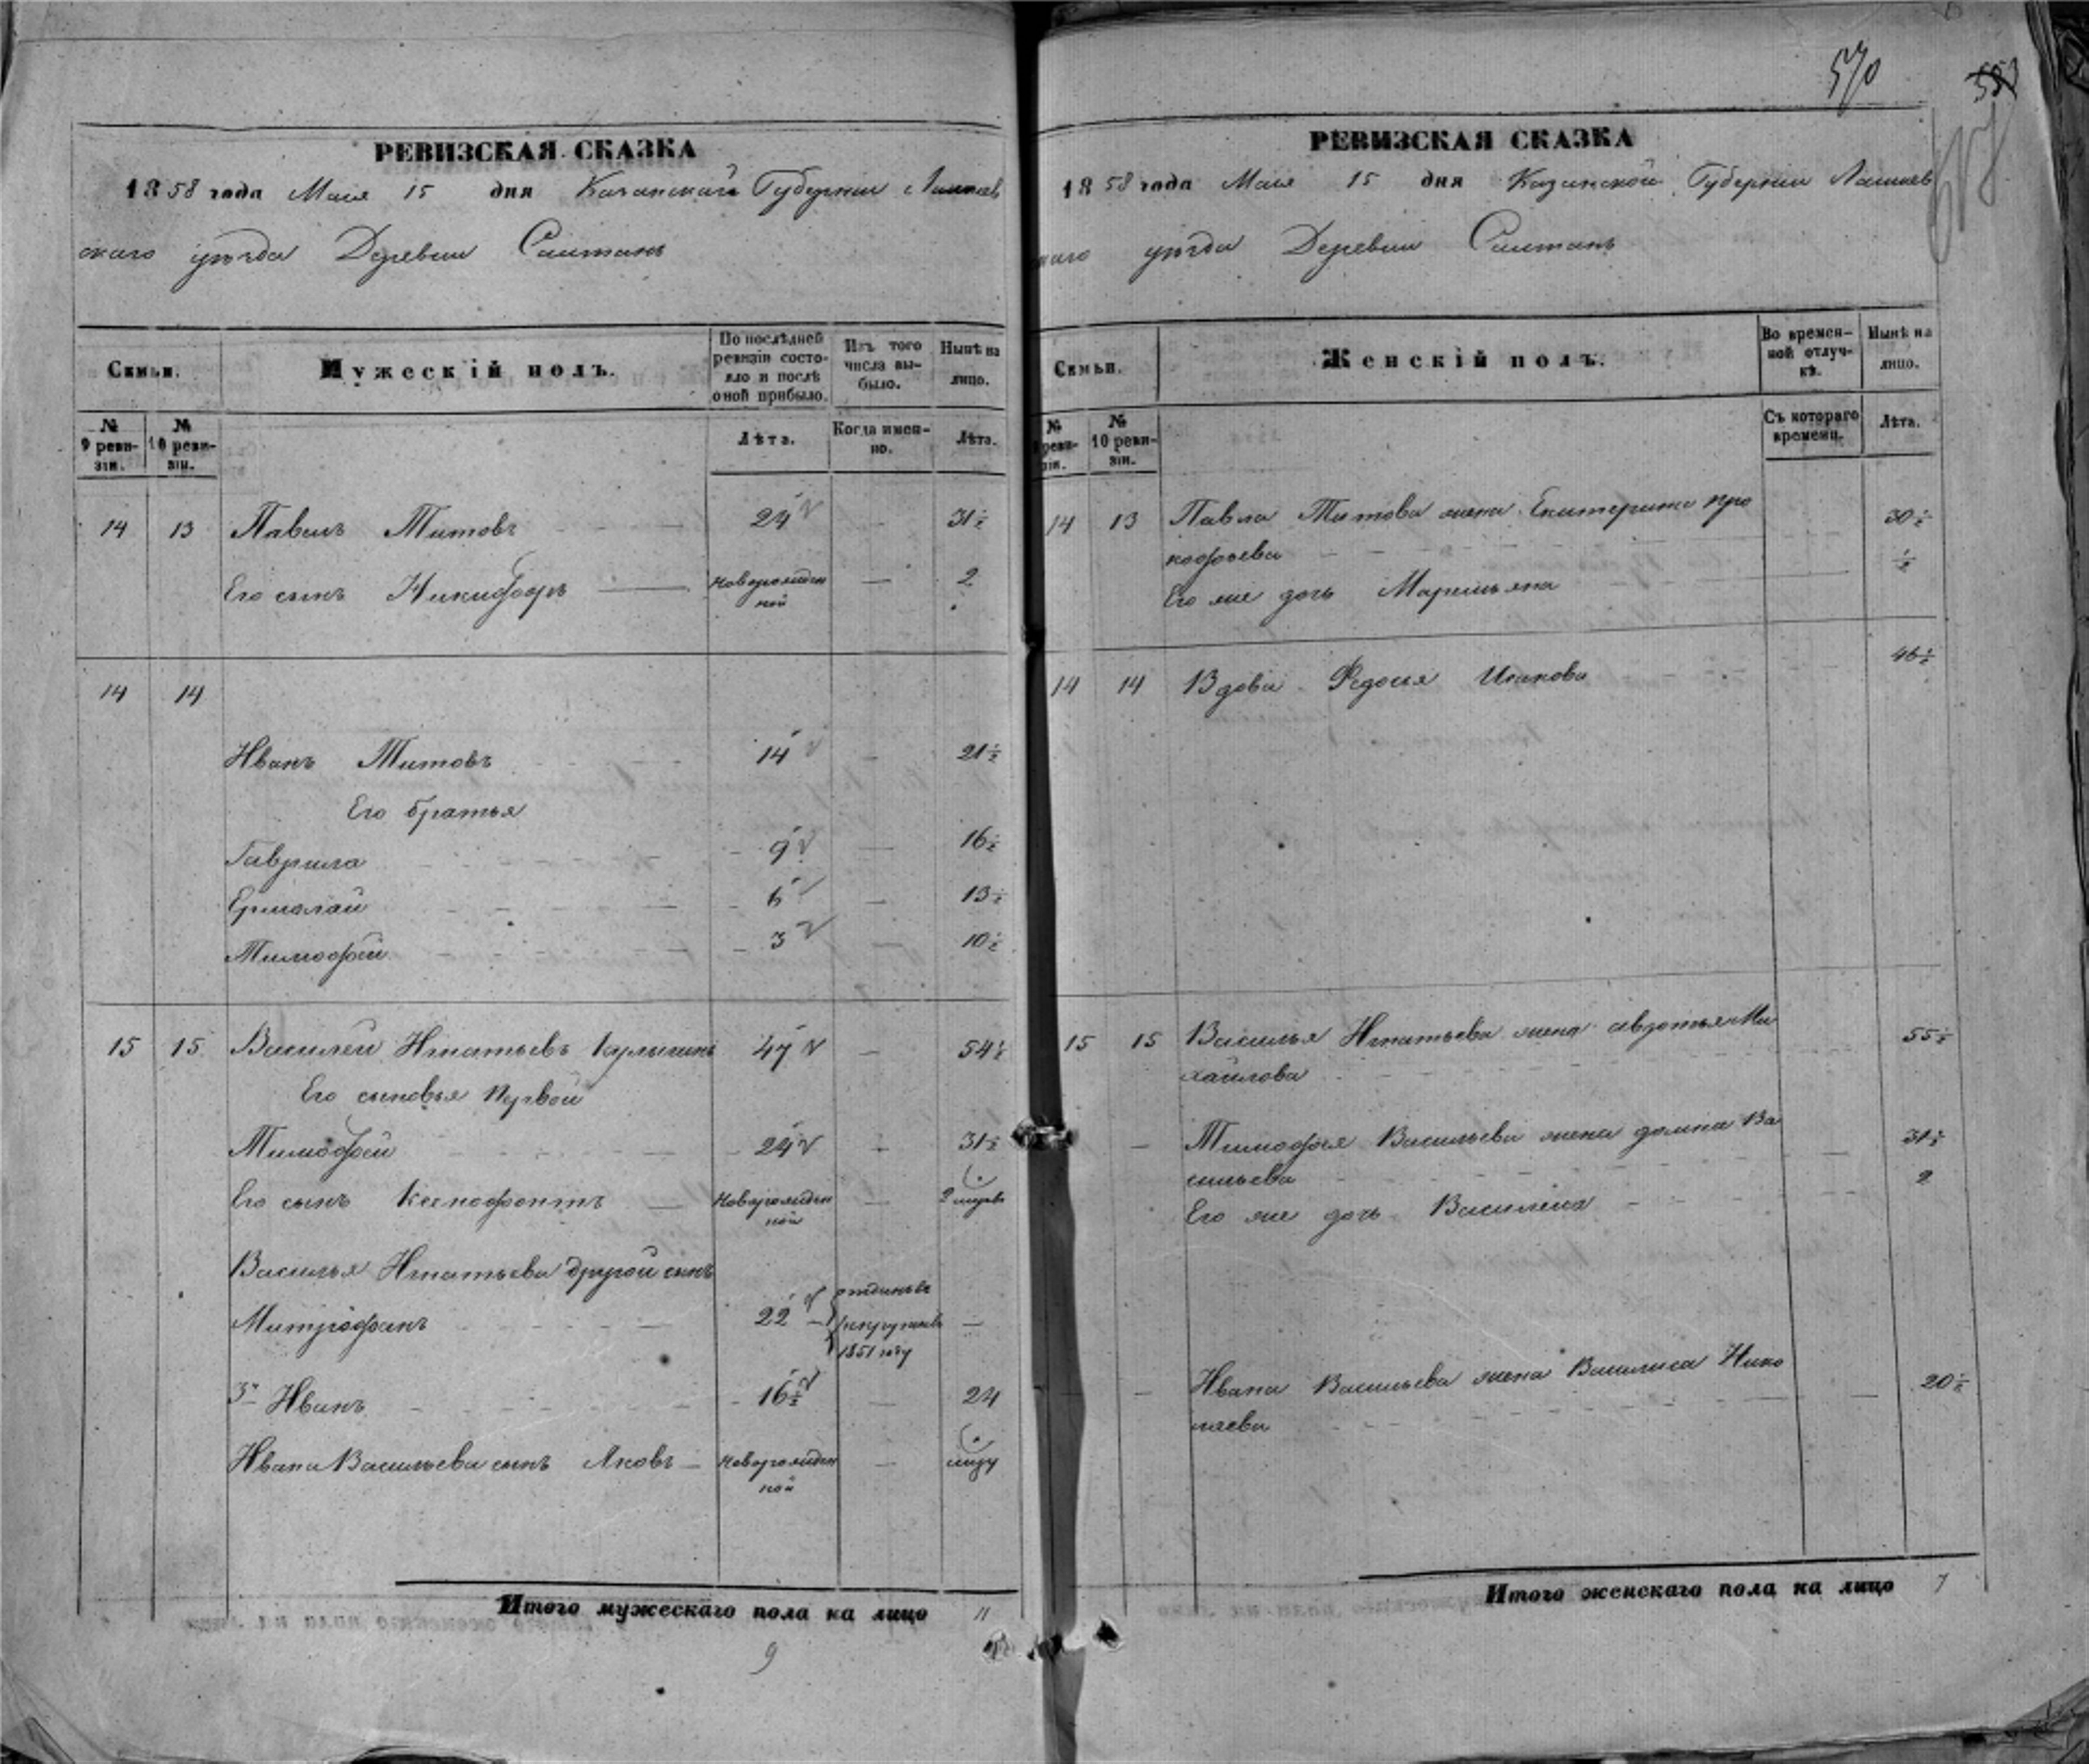 РЕВИЗСКАЯ СКАЗКА
1858 года Мая 15 дня Казанской Губернии Лаишев
скаго уѣзда Деревни Саитанъ
Семьи.
Мужескій полъ.
По послѣдней ревизіи состояло и послѣ оной прибыло.
Изъ того числа выбыло.
Нынѣ на лицо.
№ 9 ревизіи.
№ 10 ревизіи.
Лѣта.
Когда именно.
Лѣта.
14 13 Павелъ Титовъ 24 — 31½
Его сынъ Никифоръ — новорожден — 2
ной
14 14
Иванъ Титовъ 14 — 21½
Его братья
Гаврила 9 — 16½
Ермолай 6 — 13½
Тимофей 3 — 10½
15 15 Василей Игнатьевъ 47 — 54½
Его сыновья Первой
Тимофей 24 — 31½
Его сынъ Ксенофонтъ — Новорожден —
ной
Василья Игнатьева другой сынъ
Митрофанъ 22 — отданъ въ рекруты въ 1851 году —
3й Иванъ 16½ — 24
Ивана Васильева сынъ Яковъ — новорожден —
ной
Итого мужескаго пола на лицо 11
9
570
553
РЕВИЗСКАЯ СКАЗКА
1858 года Мая 15 дня Казанской Губернии Лаишев
скаго уѣзда Деревни Саитанъ
Семьи.
Женскій полъ.
Во временной отлучкѣ.
Нынѣ на лицо.
№ 9 ревизіи.
№ 10 ревизіи.
Съ котораго времени.
Лѣта.
14 13 Павла Титова жена Екатерина про 30½
кофьева
Его же дочь Маремьяна ½
14 14 Вдова Федосья Исакова 46½
15 15 Василья Игнатьева жена авдотья Ми 55½
хайлова
— Тимофея Васильева жена домна Ва 31½
сильева
Его же дочь Василиса 2
— Ивана Васильева жена Василиса Нико 20½
лаева
Итого женскаго пола на лицо 7